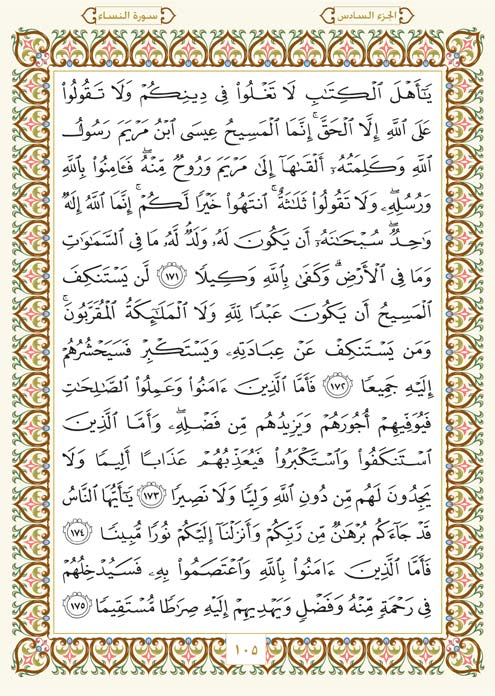 الجزء السادس
سورة النساء
يَـٰٓأَهۡلَ ٱلۡكِتَٰبِ لَا تَغۡلُواْ فِي دِينِكُمۡ وَلَا تَقُولُواْ
عَلَى ٱللَّهِ إِلَّا ٱلۡحَقَّۚ إِنَّمَا ٱلۡمَسِيحُ عِيسَى ٱبۡنُ مَرۡيَمَ رَسُولُ
ٱللَّهِ وَكَلِمَتُهُۥٓ أَلۡقَىٰهَآ إِلَىٰ مَرۡيَمَ وَرُوحٞ مِّنۡهُۖ فَـَٔامِنُواْ بِٱللَّهِ
وَرُسُلِهِۦۖ وَلَا تَقُولُواْ ثَلَٰثَةٌۚ ٱنتَهُواْ خَيۡرٗا لَّكُمۡۚ إِنَّمَا ٱللَّهُ إِلَٰهٞ
وَٰحِدٞۖ سُبۡحَٰنَهُۥٓ أَن يَكُونَ لَهُۥ وَلَدٞۘ لَّهُۥ مَا فِي ٱلسَّمَٰوَٰتِ
وَمَا فِي ٱلۡأَرۡضِۗ وَكَفَىٰ بِٱللَّهِ وَكِيلٗا ١٧١ لَّن يَسۡتَنكِفَ
ٱلۡمَسِيحُ أَن يَكُونَ عَبۡدٗا لِّلَّهِ وَلَا ٱلۡمَلَـٰٓئِكَةُ ٱلۡمُقَرَّبُونَۚ
وَمَن يَسۡتَنكِفۡ عَنۡ عِبَادَتِهِۦ وَيَسۡتَكۡبِرۡ فَسَيَحۡشُرُهُمۡ
إِلَيۡهِ جَمِيعٗا ١٧٢ فَأَمَّا ٱلَّذِينَ ءَامَنُواْ وَعَمِلُواْ ٱلصَّـٰلِحَٰتِ
فَيُوَفِّيهِمۡ أُجُورَهُمۡ وَيَزِيدُهُم مِّن فَضۡلِهِۦۖ وَأَمَّا ٱلَّذِينَ
ٱسۡتَنكَفُواْ وَٱسۡتَكۡبَرُواْ فَيُعَذِّبُهُمۡ عَذَابًا أَلِيمٗا وَلَا
يَجِدُونَ لَهُم مِّن دُونِ ٱللَّهِ وَلِيّٗا وَلَا نَصِيرٗا ١٧٣ يَـٰٓأَيُّهَا ٱلنَّاسُ
قَدۡ جَآءَكُم بُرۡهَٰنٞ مِّن رَّبِّكُمۡ وَأَنزَلۡنَآ إِلَيۡكُمۡ نُورٗا مُّبِينٗا ١٧٤
فَأَمَّا ٱلَّذِينَ ءَامَنُواْ بِٱللَّهِ وَٱعۡتَصَمُواْ بِهِۦ فَسَيُدۡخِلُهُمۡ
فِي رَحۡمَةٖ مِّنۡهُ وَفَضۡلٖ وَيَهۡدِيهِمۡ إِلَيۡهِ صِرَٰطٗا مُّسۡتَقِيمٗا ١٧٥
١٠٥